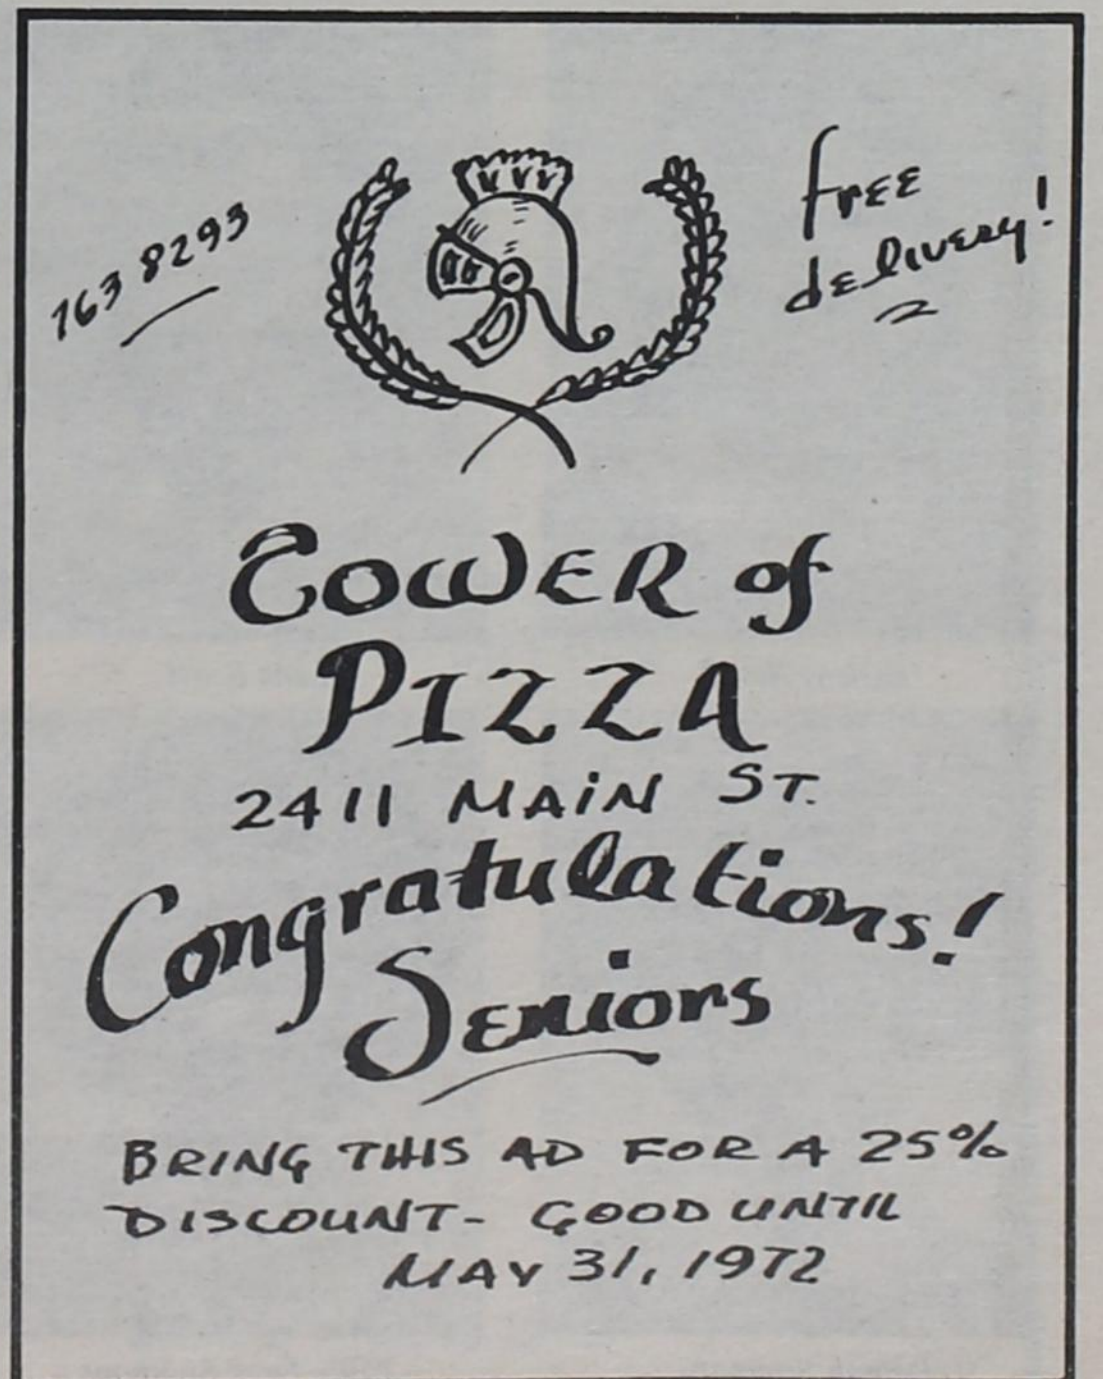 763 8293
free
delivery!
TOWER of
PIZZA
2411 MAIN ST.
Congratulations!
Seniors
BRING THIS AD FOR A 25%
DISCOUNT- GOOD UNTIL
MAY 31, 1972